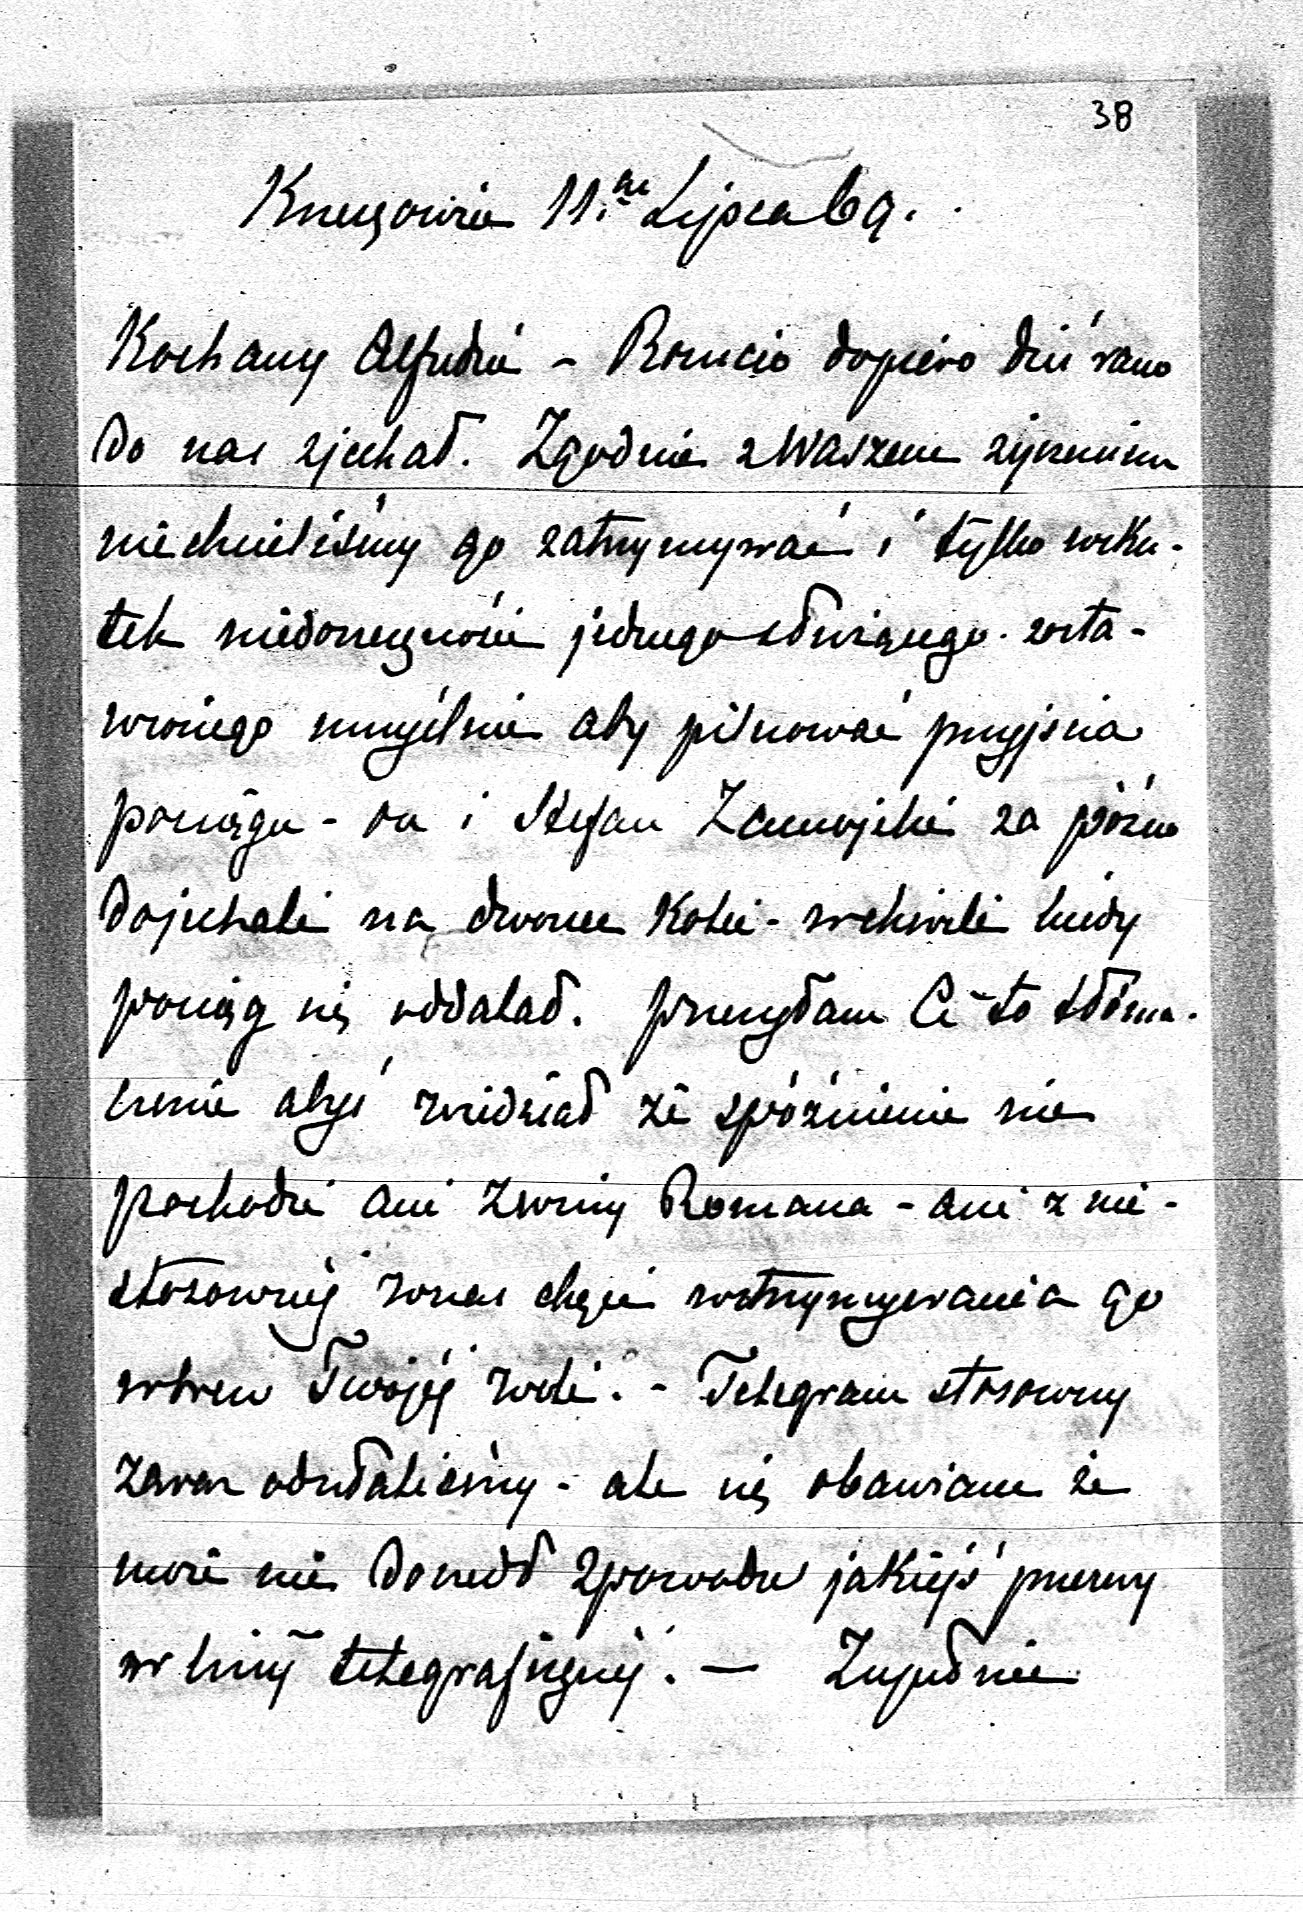 38
Krzeszowice 11.go Lipca 69.
Kochany Alfredzie – Romcio dopiero dziś rano
do nas zjechał. Zgodnie z Waszem życzeniem
niechcieliśmy go zatrzymywać i tylko wsku-
tek niedorzeczności jednego służącego zosta-
wionego umyślnie aby pilnować przyjścia
pociągu – on i Stefan Zamojski za późno
dojechali na dworzec Kolei – wchwili kiedy
pociąg się oddalał. Przesyłam Ci to tłóma-
czenie abyś wiedział że spóźnienie nie
pochodzi ani zwiny Romana – ani z nie-
stosownéj wnas chęci wstrzymywania go
wbrew Twojéj woli. – Telegram stosowny
zaraz odesłaliśmy – ale się obawiam że
może nie doszedł zpowodu jakiéjś przerwy
w linij telegraficznéj. — Zupełnie